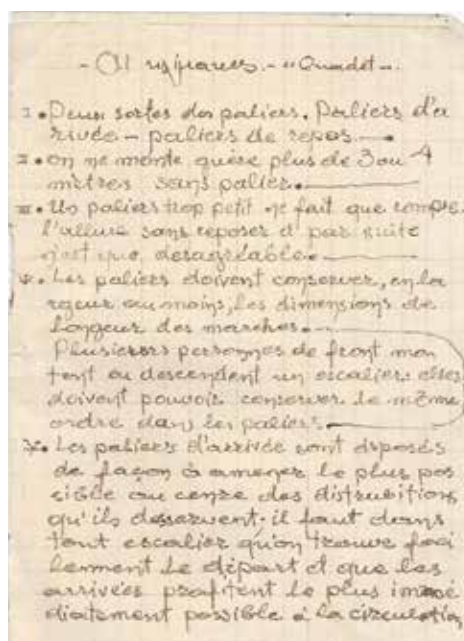 "Guadet"
I • Deux sortes des paliers. Paliers d'a
rivée - paliers de repos.
II • on ne monte guère plus de 3 ou 4
mètres sans palier.
III • Un paliers trop petit ne fait que rompre
l'allure sans reposer et par suite
n'est que desagréable.
• Les paliers doivent conserver, en la
rgeur au moins, les dimensions de
longeur des marches.
Plusierors personnes de front mon
tent ou descendent un escalier: elles
doivent pouvoir conserver le même
ordre dans les paliers.
V • Les paliers d'arrivée sont disposés
de façon à amener le plus pos
sible au centre des distributions
qu'ils desservent; il faut dans
tout escalier qu'on trouve faci
lement le départ et que les
arrivées profitent le plus immé
diatement possible à la circulation